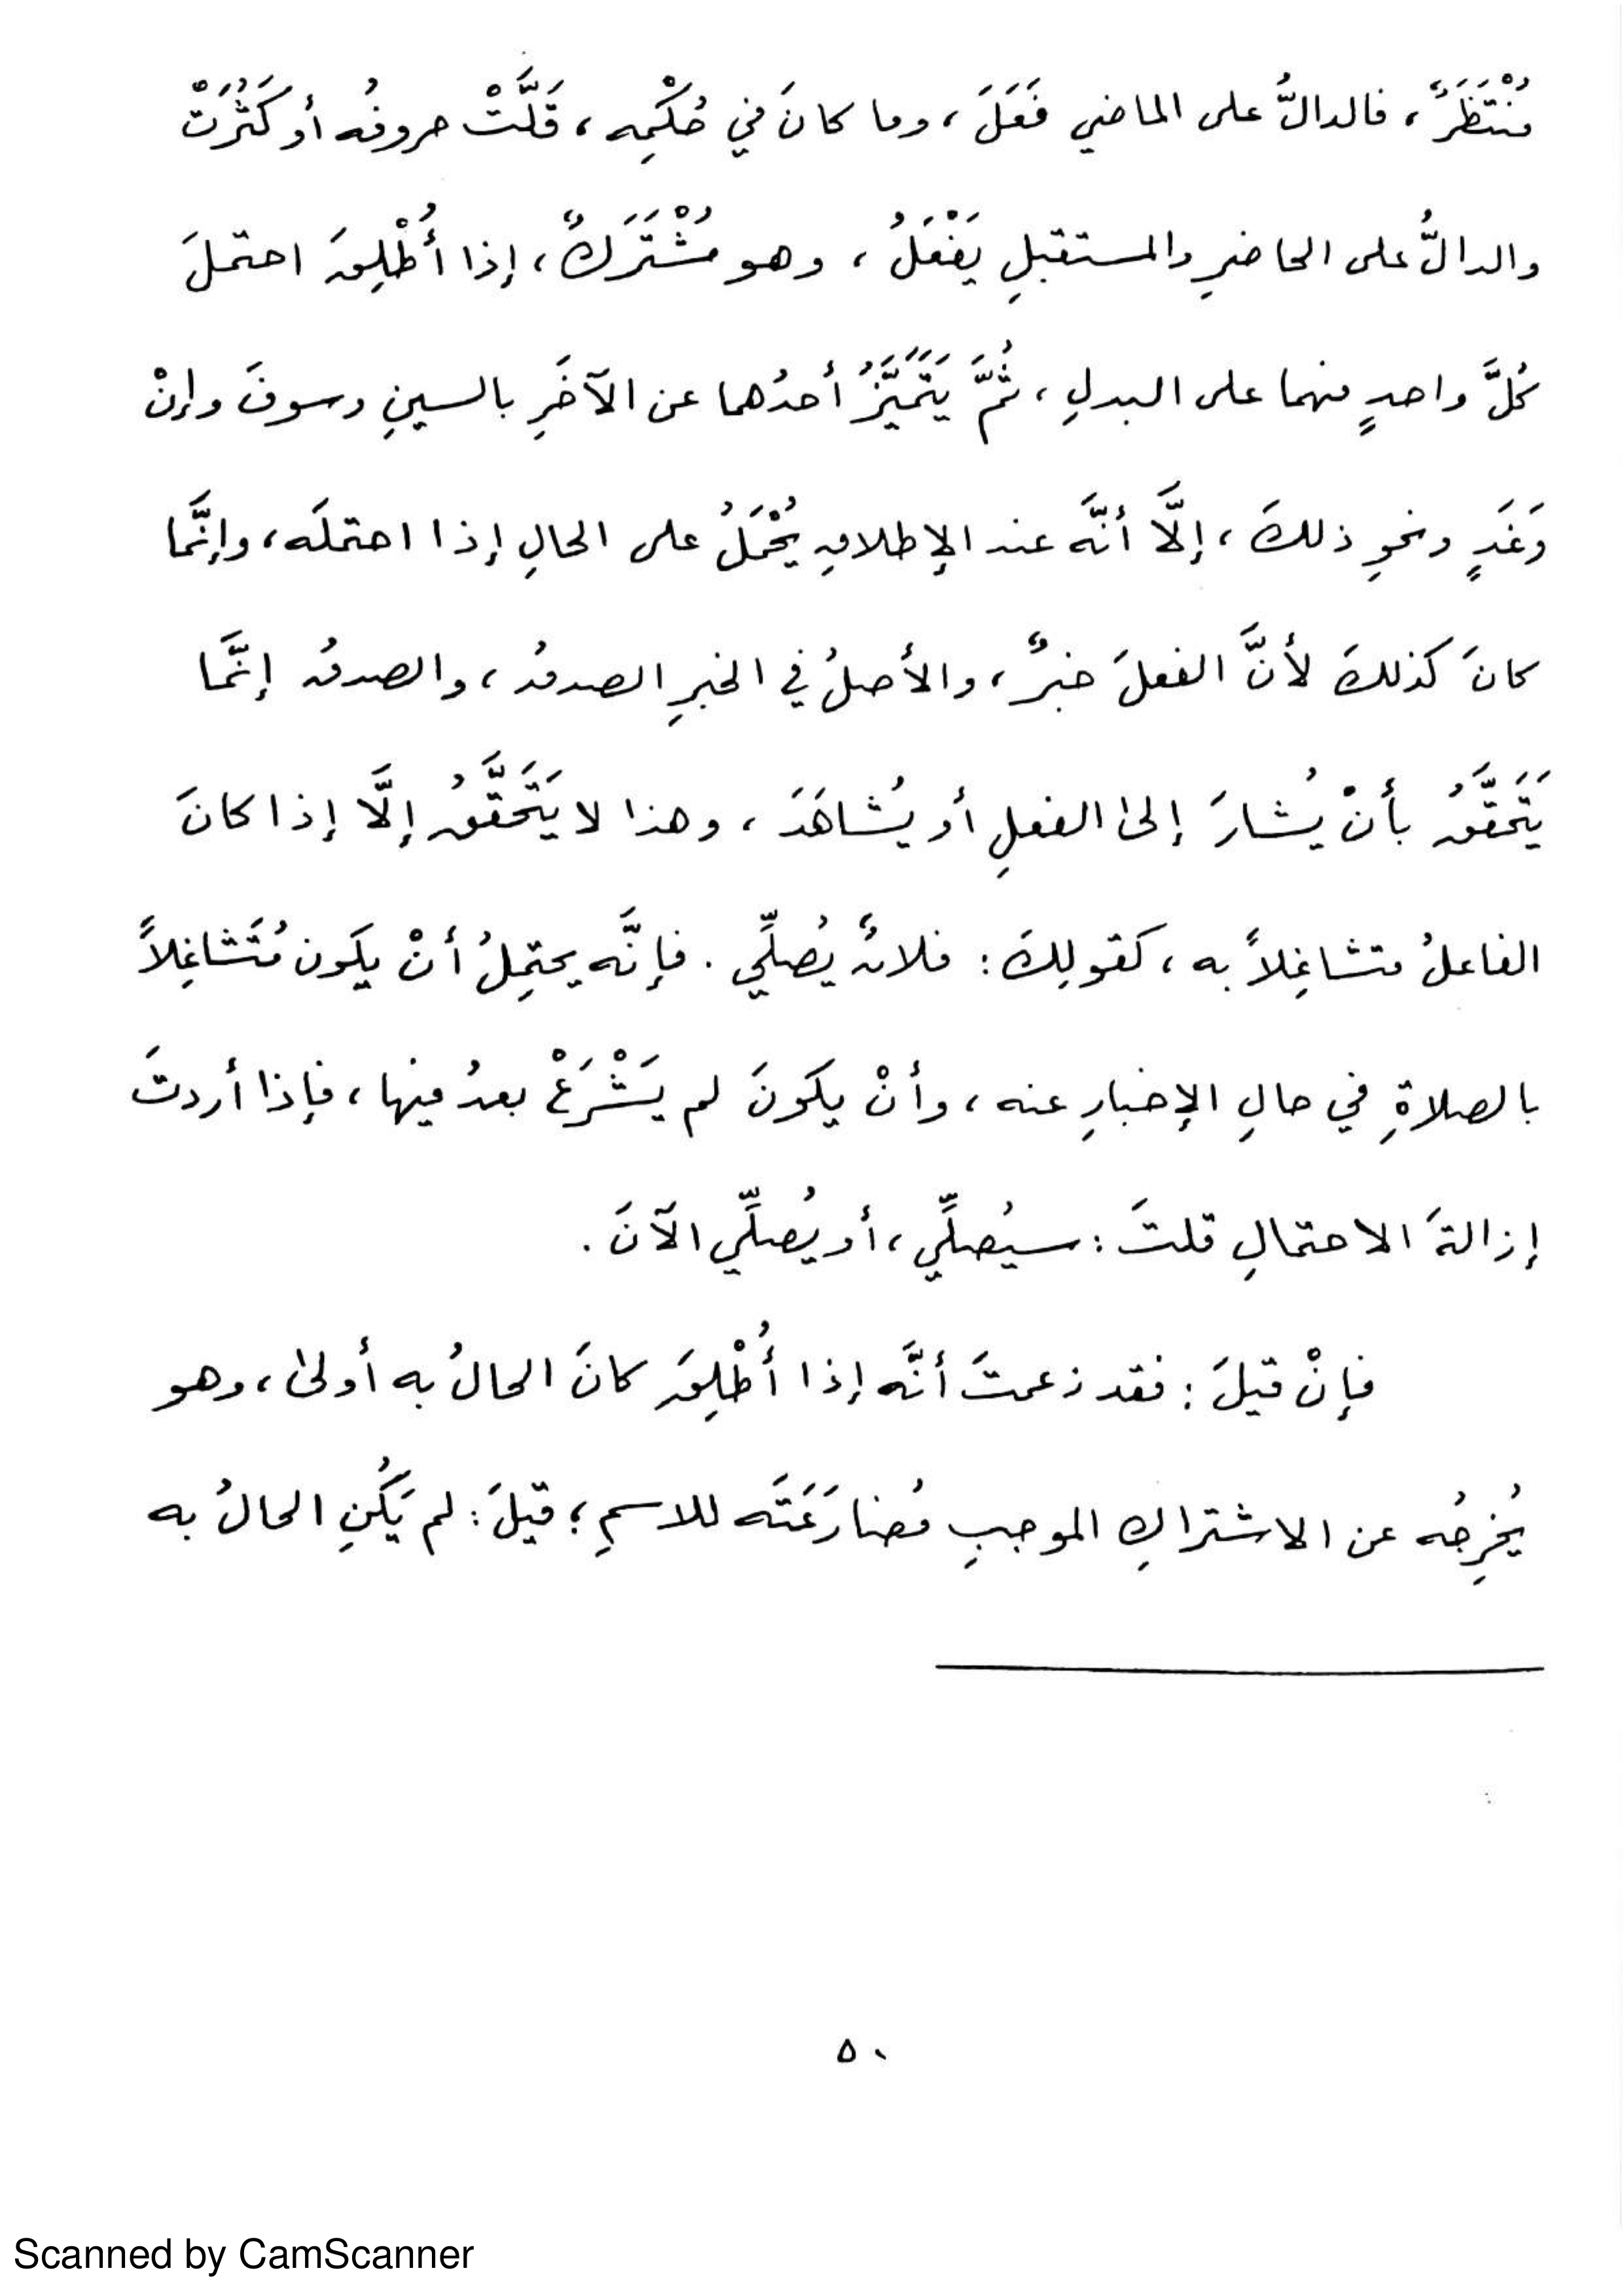 مُنْتَظَرٌ، فالدالُّ على الماضي فَعَلَ، وما كانَ في حُكْمِه، قَلَّتْ حروفُه أو كَثُرَتْ
والدالُّ على الحاضرِ والمستقبلِ يَفْعَلُ، وهو مُشْتَرَكٌ، إذا أُطْلِقَ احتملَ
كُلَّ واحدٍ منهما على البدلِ، ثُمَّ يَتَمَيَّزُ أحدُهما عن الآخَرِ بالسينِ وسوفَ وإنْ
وَغَدٍ ونحوِ ذلكَ، إلَّا أنَّه عند الإطلاقِ يُحْمَلُ على الحالِ إذا احتملَه، وإنَّما
كانَ كذلكَ لأنَّ الفعلَ خبرٌ، والأصلُ في الخبرِ الصدقُ، والصدقُ إنَّما
يَتَحَقَّقُ بأنْ يُشارَ إلىٰ الفعلِ أو يُشاهَدَ، وهذا لا يَتَحَقَّقُ إلَّا إذا كانَ
الفاعلُ متشاغِلاً به، كقولِكَ: فلانٌ يُصلِّي. فإنَّه يحتمِلُ أنْ يكون مُتَشاغِلاً
بالصلاةِ في حالِ الإخبارِ عنه، وأنْ يكونَ لم يَشْرَعْ بعدُ فيها، فإذا أردتَ
إزالةَ الاحتمالِ قلتَ: سيُصلِّي، أو يُصلِّي الآنَ.
فإنْ قيلَ: فقد زعمتَ أنَّه إذا أُطْلِقَ كانَ الحالُ به أولىٰ، وهو
يُخرِجُه عن الاشتراكِ الموجبِ مُضارَعَتَه للاسمِ؛ قيلَ: لم يَكُنِ الحالُ به
٥٠
Scanned by CamScanner